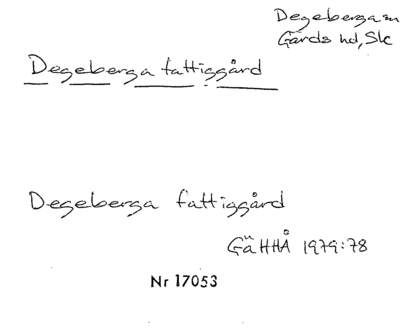 Degeberga sn
Gärds hd, Sk
Degeberga fattiggård
Degeberga fattiggård
GäHHÅ 1979:78
Nr 17053